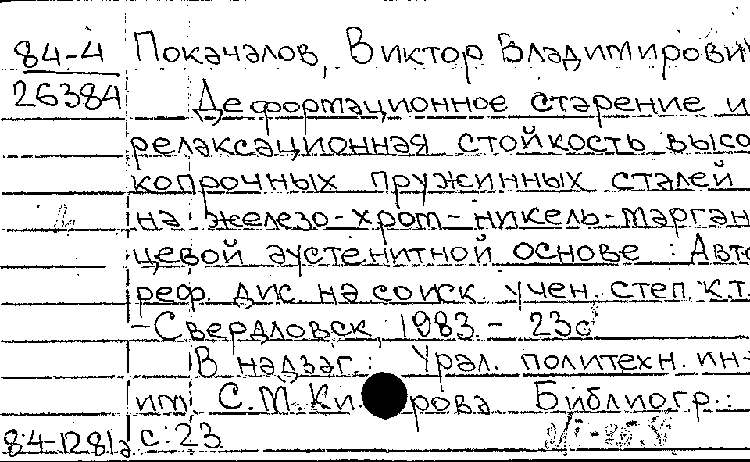 84-4 Покачалов, Виктор Владимирович
26384 Деформационное старение и
релаксационная стойкость высо
копрочных пружинных сталей
на железо-хром-никель-марган
цевой аустенитной основе : Авто
реф. дис. на соиск. учен. степ. к.т.
-Свердловск, 1983 - 23с
В надзаг.: Урал. политехн. ин-
им. С.М. Ки рова. Библиогр.:
84-1281а с. 23